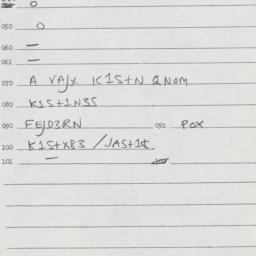 050 0
060 —
061 —
070 A VAJX K1S+N QNOM
080 K1S+1N35
090 FEJD3RN 091 POX
100 K1S+X83 /JAS+1¢.
101 —